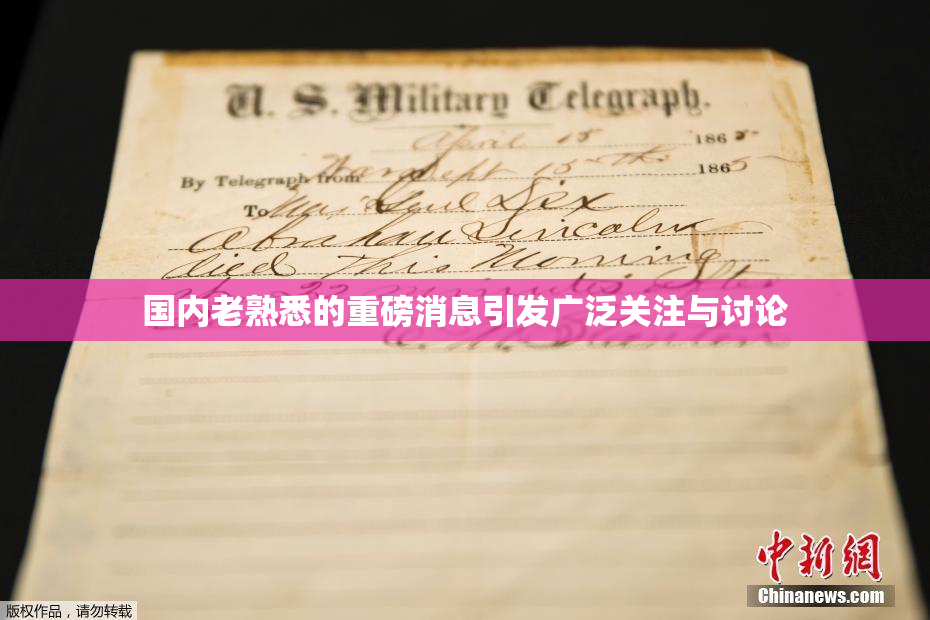 U. S. Military Telegraph.
April 15 1865
By Telegraph from War Dept 15th 1865
To Maj Genl Dix
Abraham Lincoln
died This Morning
22 minutes after
国内老熟悉的重磅消息引发广泛关注与讨论
E. M. Stanton
中新网
Chinanews.com
版权作品，请勿转载